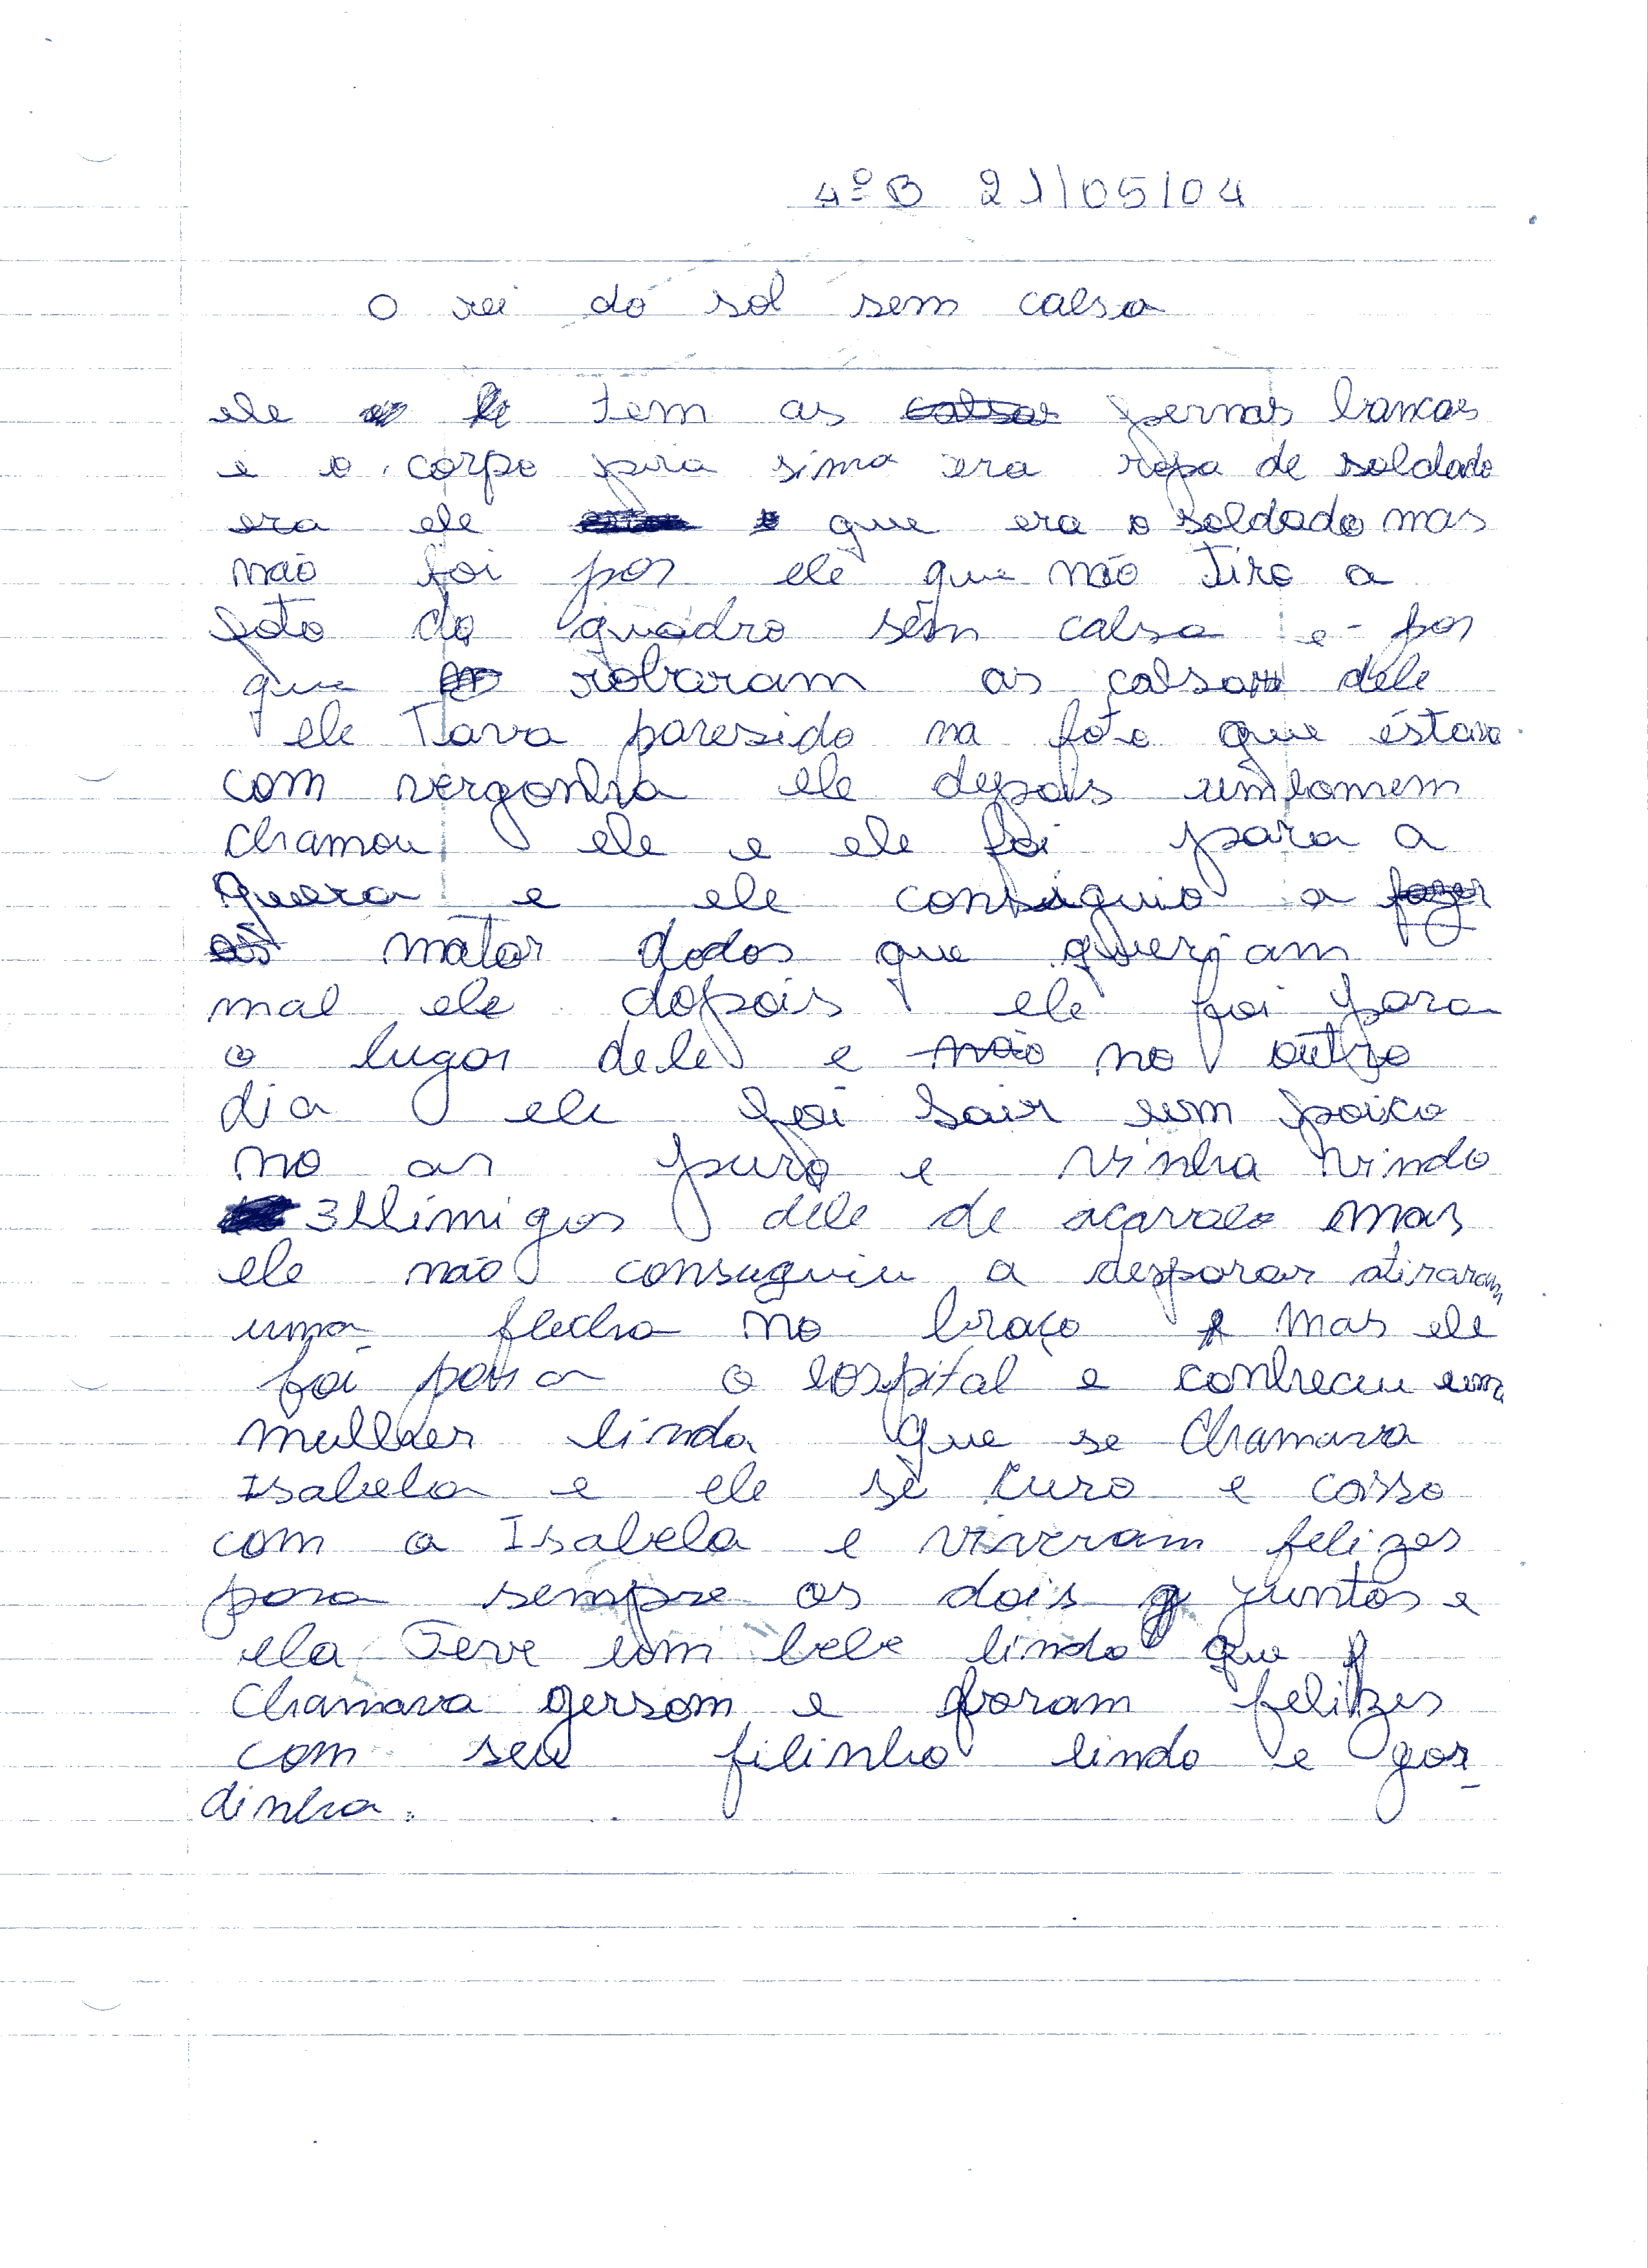 4º B 21/05/04
O rei do sol sem calsa
ele tem as pernas brancas
e o corpo pra sima era ropa de soldado
era ele que era o soldado mas
não foi por ele que não tiro a
foto do quadro sem calsa e por
que robaram as calsa dele
ele Tava paresido na foto que éstava
com vergonha ele depois um lomem
chamou ele e ele foi para a
guera e ele consiguio a
matar dodos que queriam
mal ele dopois ele foi para
o lugar dele e no outro
dia ele foi sair um pouco
no ar puro e vinha vindo
3 Ilimigos dele de acavalo mas
ele não conseguiu a desparar atiraram
uma flecha no braço mas ele
foi para o lospital e conheceu uma
mullher linda que se chamava
Isabela e ele se curo e casso
com a Isabela e viveram felizes
para sempre os dois juntos e
ela Teve um bebe lindo que
chamava gersom e foram felizes
com seu filinho lindo e gor
dinho.